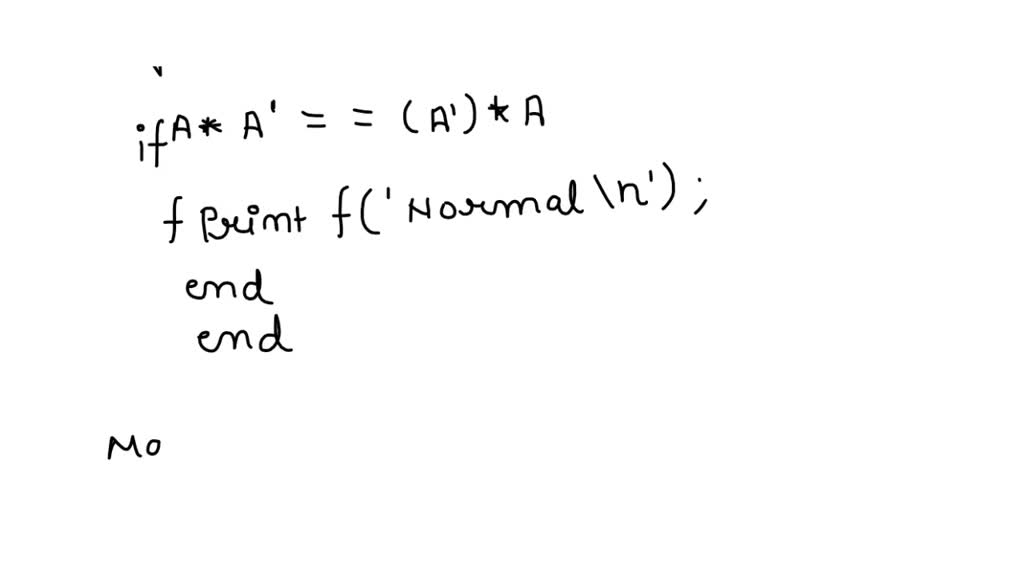 if A* A' = = (A') * A
f print f('Normal \n');
end
end
Mo